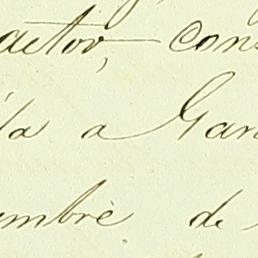 actor, cons
la a Gar
umbre de